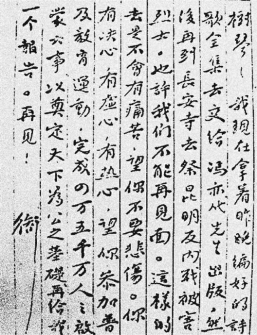 树琴：我现在拿着昨晚编好的诗
歌全集去交给冯亦代先生出版，然
后再到長安寺去祭昆明反内战被害
烈士。也許我们不能再见面。這樣的
去是不會有痛苦，望你不要悲傷。你
有决心，有虚心，有熱心，望你参加普
及教育運動，完成四万五千万人之啟
蒙大事，以奠定天下為公之基礎，再给谁
一个報告。再见！
衍